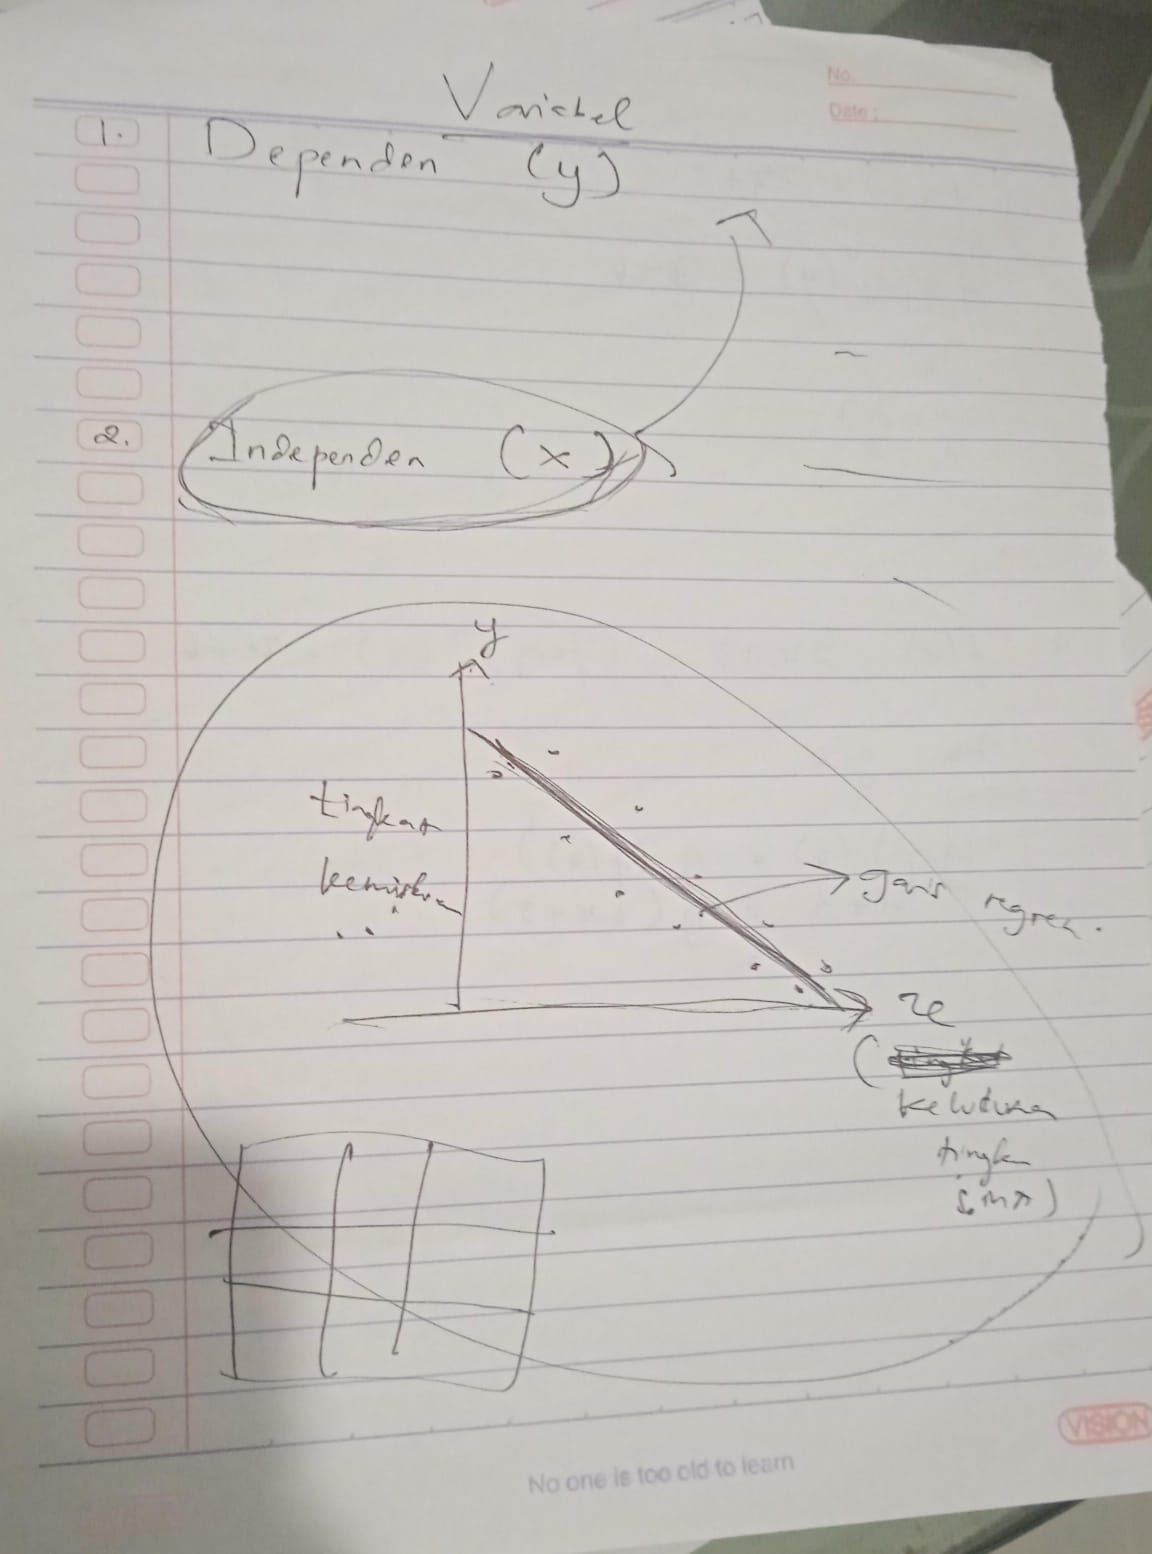 No.
Date:
Variabel
1. Dependen (y)
2. Independen (x)
y
tingkat
kemiskinan
garis regres.
x
(
keluduran
tingkat
VISION
No one is too old to learn